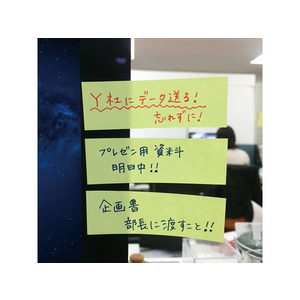 Y社にデータ送る!
忘れずに!
プレゼン用 資料
明日中!!
企画書
部長に渡すこと!!